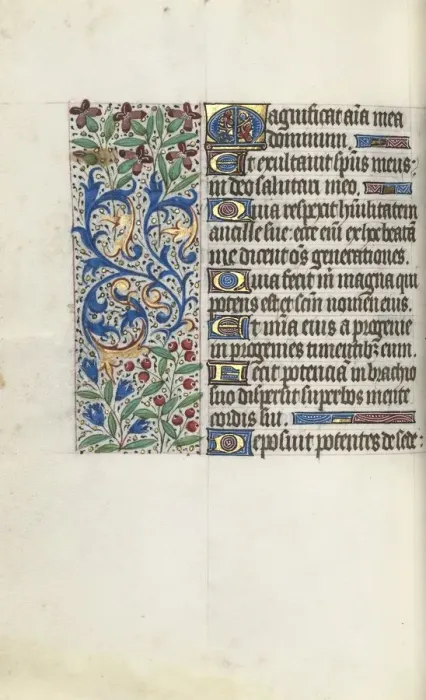 Magnificat aīa mea
dominum.
Et exultavit spūs meus:
in deo salutari meo.
Quia respexit hūilitatem
ancille sue: ecce eni ex hoc beatā
me dicent oēs generationes.
Quia fecit m̄ magna qui
potens est et scm̄ nomen eius.
Et mīa eius a progenie
in progenies timentibz eum.
Fecit potenciā in brachio
suo dispersit superbos mente
cordis sui.
Deposuit potentes de sede: